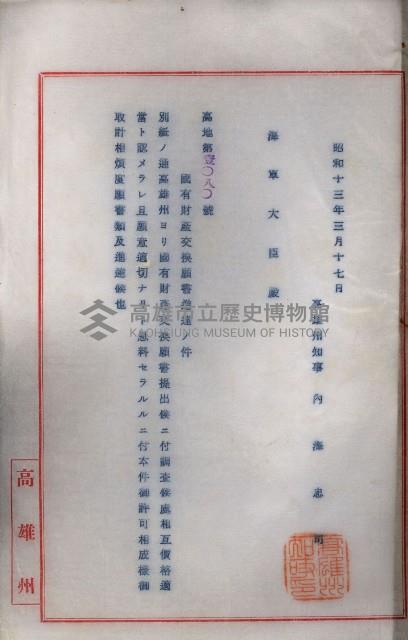 昭和十三年三月十七日
高雄州知事 內海忠司
海軍大臣殿
高地第壹〇八〇號
國有財產交換願書進達ノ件
別紙ノ通高雄州ヨリ國有財產交換願書提出候ニ付調査候處相互價格適
當ト認メラレ且願意適切ナリト思料セラルルニ付本件御許可相成樣御
取計相煩度願書類及進達候也
高雄州
高雄市立歷史博物館
KAOHSIUNG MUSEUM OF HISTORY